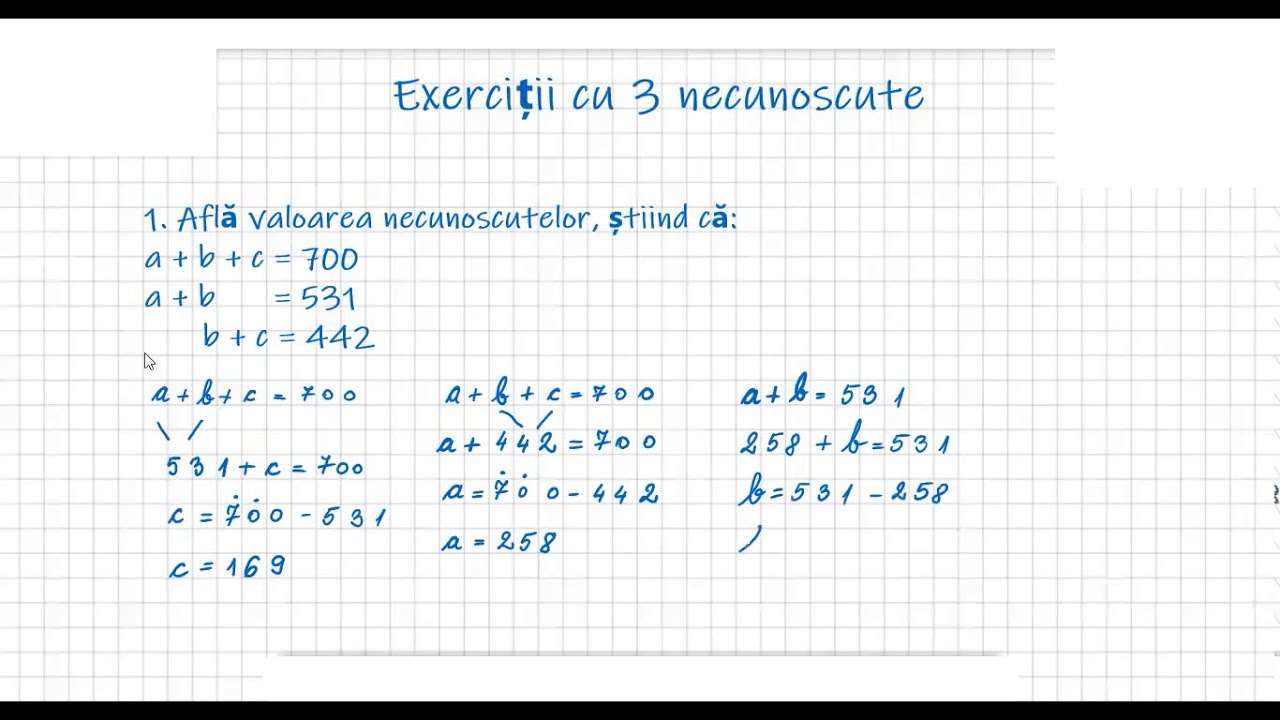 Exerciții cu 3 necunoscute
1. Află valoarea necunoscutelor, știind că:
a + b + c = 700
a + b = 531
b + c = 442
a + b + c = 700
531 + c = 700
c = 700 - 531
c = 169
a + b + c = 700
a + 442 = 700
a = 700 - 442
a = 258
a + b = 531
258 + b = 531
b = 531 - 258